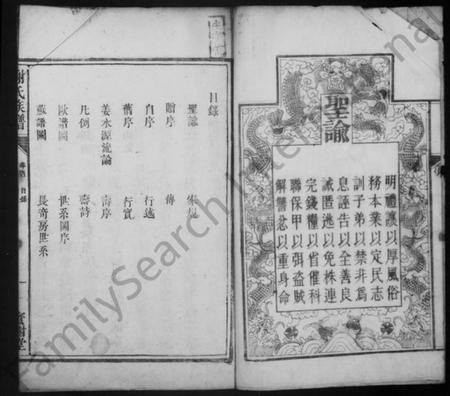 聖諭
明禮讓以厚風俗
務本業以定民志
訓子弟以禁非為
息誣告以全善良
誡匿逃以免株連
完錢糧以省催科
聯保甲以弭盜賊
解讐忿以重身命
目錄
聖諭
贈序
自序
舊序
姜水源流論
凡例
歐譜圖
蘇譜圖
家規
傳
行述
行實
壽序
壽詩
世系圖序
長奇房世系
謝氏族譜
卷首 目錄
一
寶樹堂
FamilySearch International